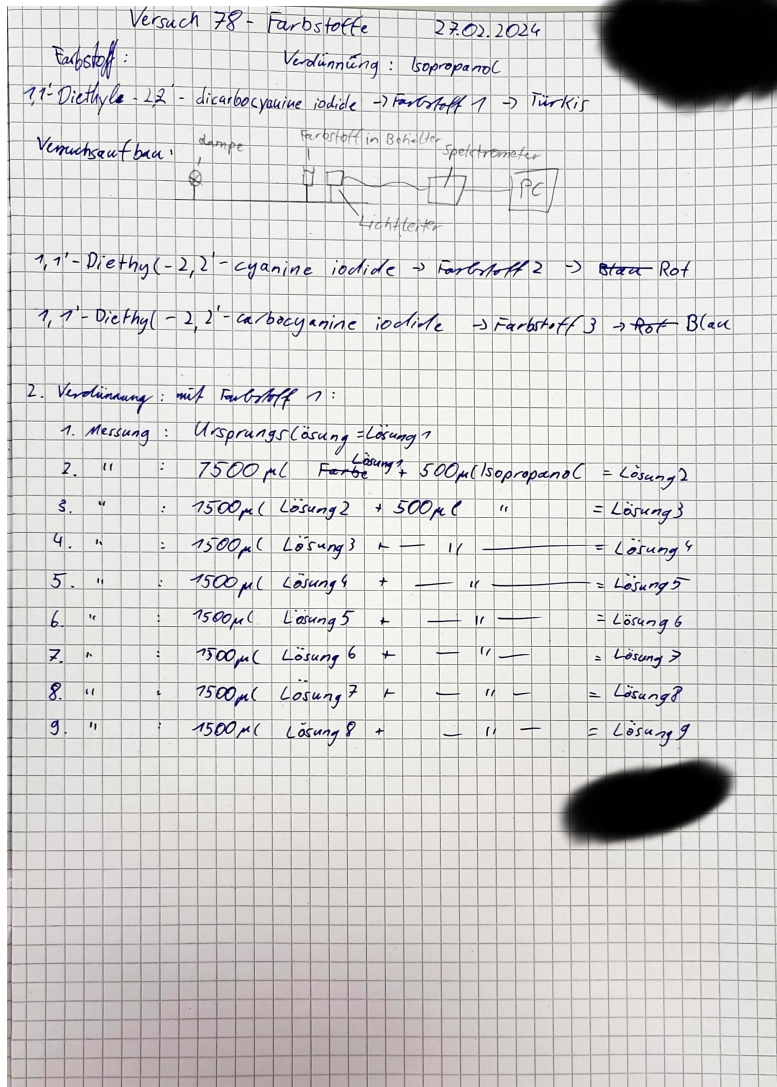 Versuch 78 - Farbstoffe 27.02.2024
Farbstoff: Verdünnung: Isopropanol
1,1'-Diethyle-2,2'-dicarbocyanine iodide → Farbstoff 1 → Türkis
Versuchsaufbau: Lampe Farbstoff in Behälter Spektrometer
PC
Lichtleiter
1,1'-Diethyl-2,2'-cyanine iodide → Farbstoff 2 → Blau Rot
1,1'-Diethyl-2,2'-carbocyanine iodide → Farbstoff 3 → Rot Blau
2. Verdünnung: mit Farbstoff 1:
1. Messung : Ursprungslösung = Lösung 1
2. " : 1500μl Farbe Lösung 1 + 500μl Isopropanol = Lösung 2
3. " : 1500μl Lösung 2 + 500μl " = Lösung 3
4. " : 1500μl Lösung 3 + — " — = Lösung 4
5. " : 1500μl Lösung 4 + — " — = Lösung 5
6. " : 1500μl Lösung 5 + — " — = Lösung 6
7. " : 1500μl Lösung 6 + — " — = Lösung 7
8. " : 1500μl Lösung 7 + — " — = Lösung 8
9. " : 1500μl Lösung 8 + — " — = Lösung 9